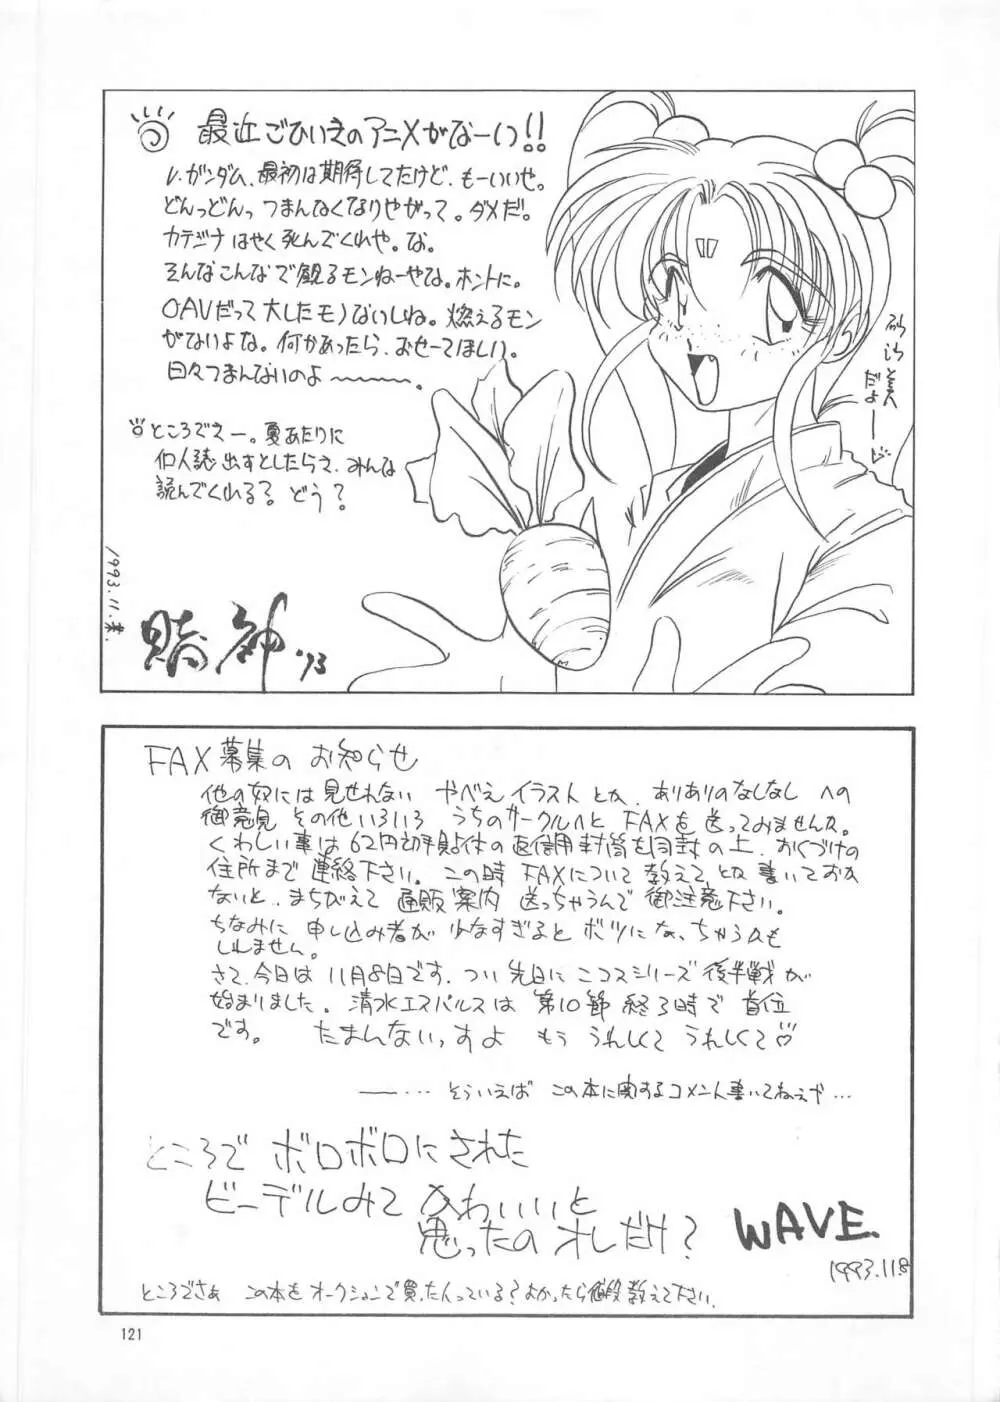 最近ごひいきのアニメがなーいっ!!
V.ガンダム、最初は期待してたけど、もーいいぜ。
どんっどんっつまんなくなりやがって。ダメだ。
カテジナはやく死んでくれや。な。
そんなこんなで観るモンねーやな。ホントに。
OAVだって大したモノないしね。燃えるモン
がないよな。何かあったら、おせーてほしい。
日々つまんないのよ〜〜〜。
ところでえー。夏あたりに
個人誌出すとしたらさ、みんな
読んでくれる? どう?
1993.11.末.
賭神 '93
砂沙美
だよー
FAX募集のお知らせ
他の奴には見せれない やべえイラストとか、ありありのなしなし への
御意見 その他いろいろ うちのサークルへと FAXを送ってみませんか。
くわしい事は62円切手貼付の返信用封筒を同封の上、おくづけの
住所まで連絡下さい。この時 FAXについて教えて とか書いておか
ないと、まちがえて 通販案内 送っちゃうんで 御注意下さい。
ちなみに 申し込み者が 少なすぎると ボツになっちゃうかも
しれません。
さて、今日は 11月8日です。つい先日に ニコスシリーズ後半戦が
始まりました。清水エスパルスは 第10節 終了時で 首位
です。 たまんないっすよ もう うれしくて うれしくて♡
――… そういえば この本に関するコメント書いてねえや…
ところで ボロボロにされた
ビーデルみて かわいいと
思ったの オレだけ?
WAVE.
1993.11.8
ところでさぁ この本を オークションで買った人っている? よかったら値段教えて下さい。
121